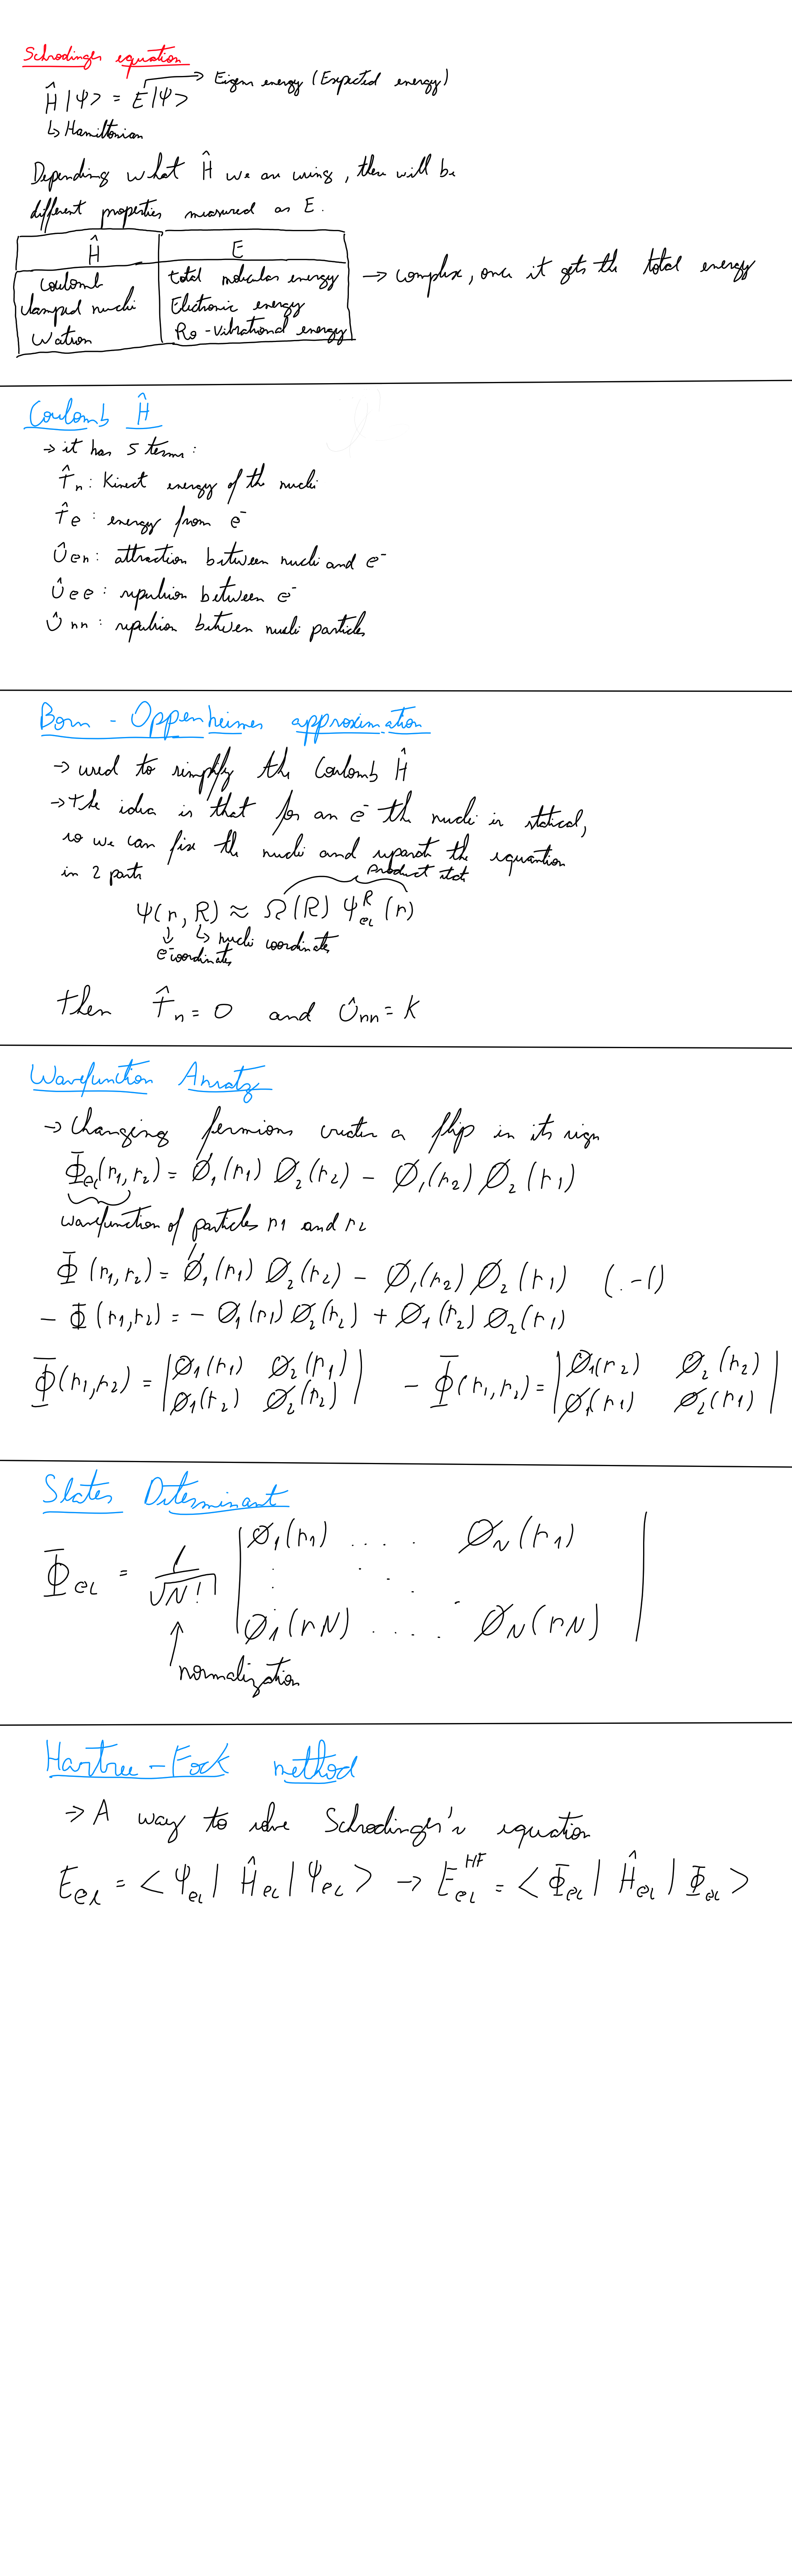 Schrodinger equation
Ĥ|Ψ> = E|Ψ> → Eigen energy (Expected energy)
↳ Hamiltonian
Depending what Ĥ we are using, there will be
different properties measured as E.
Ĥ E
Coulomb total molecular energy → complex, once it gets the total energy
clamped nuclei Electronic energy
Watson Ro-vibrational energy
Coulomb Ĥ
→ it has 5 terms:
T̂n: Kinect energy of the nuclei
T̂e: energy from e⁻
Ûen: attraction between nuclei and e⁻
Ûee: repulsion between e⁻
Ûnn: repulsion between nuclei particles
Born - Oppenheimer approximation
→ used to simplify the Coulomb Ĥ
→ the idea is that for an e⁻ the nuclei is statical,
so we can fix the nuclei and separate the equantion
in 2 parts
product state
Ψ(r, R) ≈ Ω(R) Ψ^R_el (r)
↓ ↳ nuclei coordinates
e⁻coordinates
then T̂n = 0 and Ûnn = K
Wavefunction Ansatz
→ changing fermions creates a flip in its sign
Φel(r1, r2) = Ø1(r1) Ø2(r2) - Ø1(r2) Ø2(r1)
wavefunction of particles r1 and r2
Φ(r1, r2) = Ø1(r1) Ø2(r2) - Ø1(r2) Ø2(r1) (.-1)
- Φ(r1, r2) = - Ø1(r1) Ø2(r2) + Ø1(r2) Ø2(r1)
Φ(r1, r2) = |Ø1(r1) Ø2(r1)| - Φ(r1, r2) = |Ø1(r2) Ø2(r2)|
|Ø1(r2) Ø2(r2)| |Ø1(r1) Ø2(r1)|
Slater Determinant
Φel = 1/√N! |Ø1(r1) .... ØN(r1)|
|Ø1(rN) .... ØN(rN)|
↑
normalization
Hartree-Fock method
→ A way to solve Schrodinger's equation
Eel = <Ψel| Ĥel |Ψel> → E^HF_el = <Φel| Ĥel |Φel>